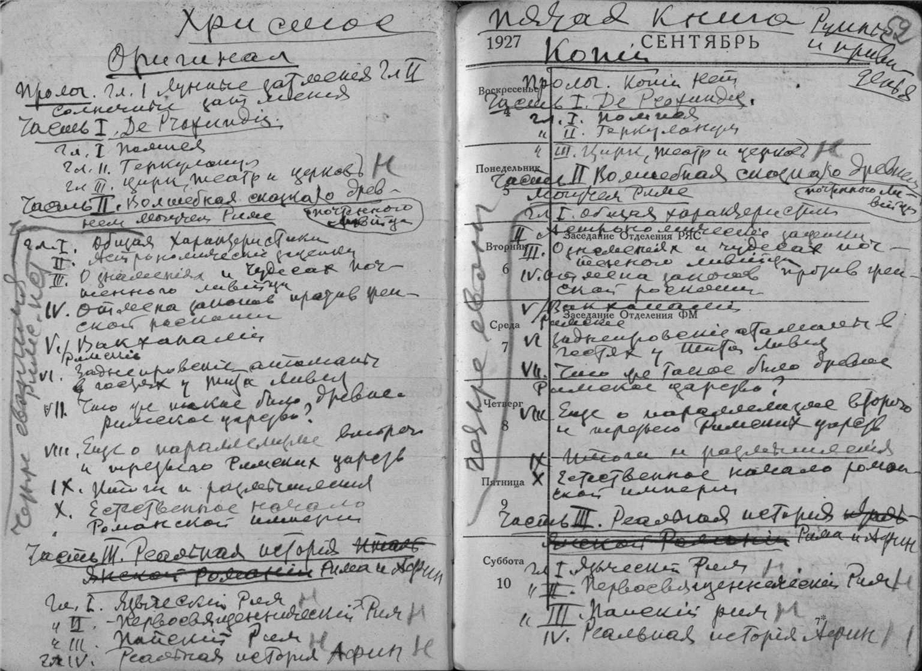 Христос
Оригинал
Пролог. Гл. I Лунные затмения Гл II
Солнечные затмения
Часть I. De Profundis.
Гл. I Помпея
Гл. II. Геркуланум
Гл III. Цирк, театр и церковь Н
Часть II. Волшебная сказка о древ-
нем могучем Риме
почтенного
Ливица
Гл. I. Общая характеристика
II. Астрономические оценки
III. О знамениях и чудесах поч-
тенного Ливица
IV. Отмена законов против жен-
ской роскоши
V. Вакханалии
Римские
VI. Заднепровские атаманы
в гостях у Тита Ливия
VII. Что же такое было древнее
Римское царство?
VIII. Еще о параллелизме второго
и третьего Римских царств
IX. Итоги и размышления
X. Естественное начало
Романской империи
Часть III. Реальная история
Рима и Афин
Гл. I. Языческий Рим Н
" II. Первосвященнический Рим Н
" III. Папский Рим Н
Гл IV. Реальная история Афин Н
Пятая книга
52
1927 СЕНТЯБРЬ
Копии
Воскресенье
4
Пролог. Копии нет
Часть I. De Profundis.
Гл. I. Помпея
" II. Геркуланум
" III. Цирк, театр и церковь Н
Понедельник
5
Часть II Волшебная сказка о древнем
могучем Риме
почтенного Ли-
вица
Гл I. Общая характеристика
Заседание Отделения ГИС
Вторник
6
III. О знамениях и чудесах поч-
тенного Ливица
IV. Отмена законов против жен-
ской роскоши
V Вакханалии
Римские
Заседание Отделения ФМ
Среда
7
VI Заднепровские атаманы в
гостях у Тита Ливия
VII. Что же такое было древнее
Римское царство?
Четверг
8
VIII Еще о параллелизме второго
и третьего Римских царств
IX Итоги и размышления
Пятница
9
X Естественное начало роман-
ской империи
Часть III. Реальная история
Рима и Афин
Суббота
10
Гл I Языческий Рим Н
" II. Первосвященнический Рим Н
" III Папский Рим Н
IV. Реальная история Афин Н